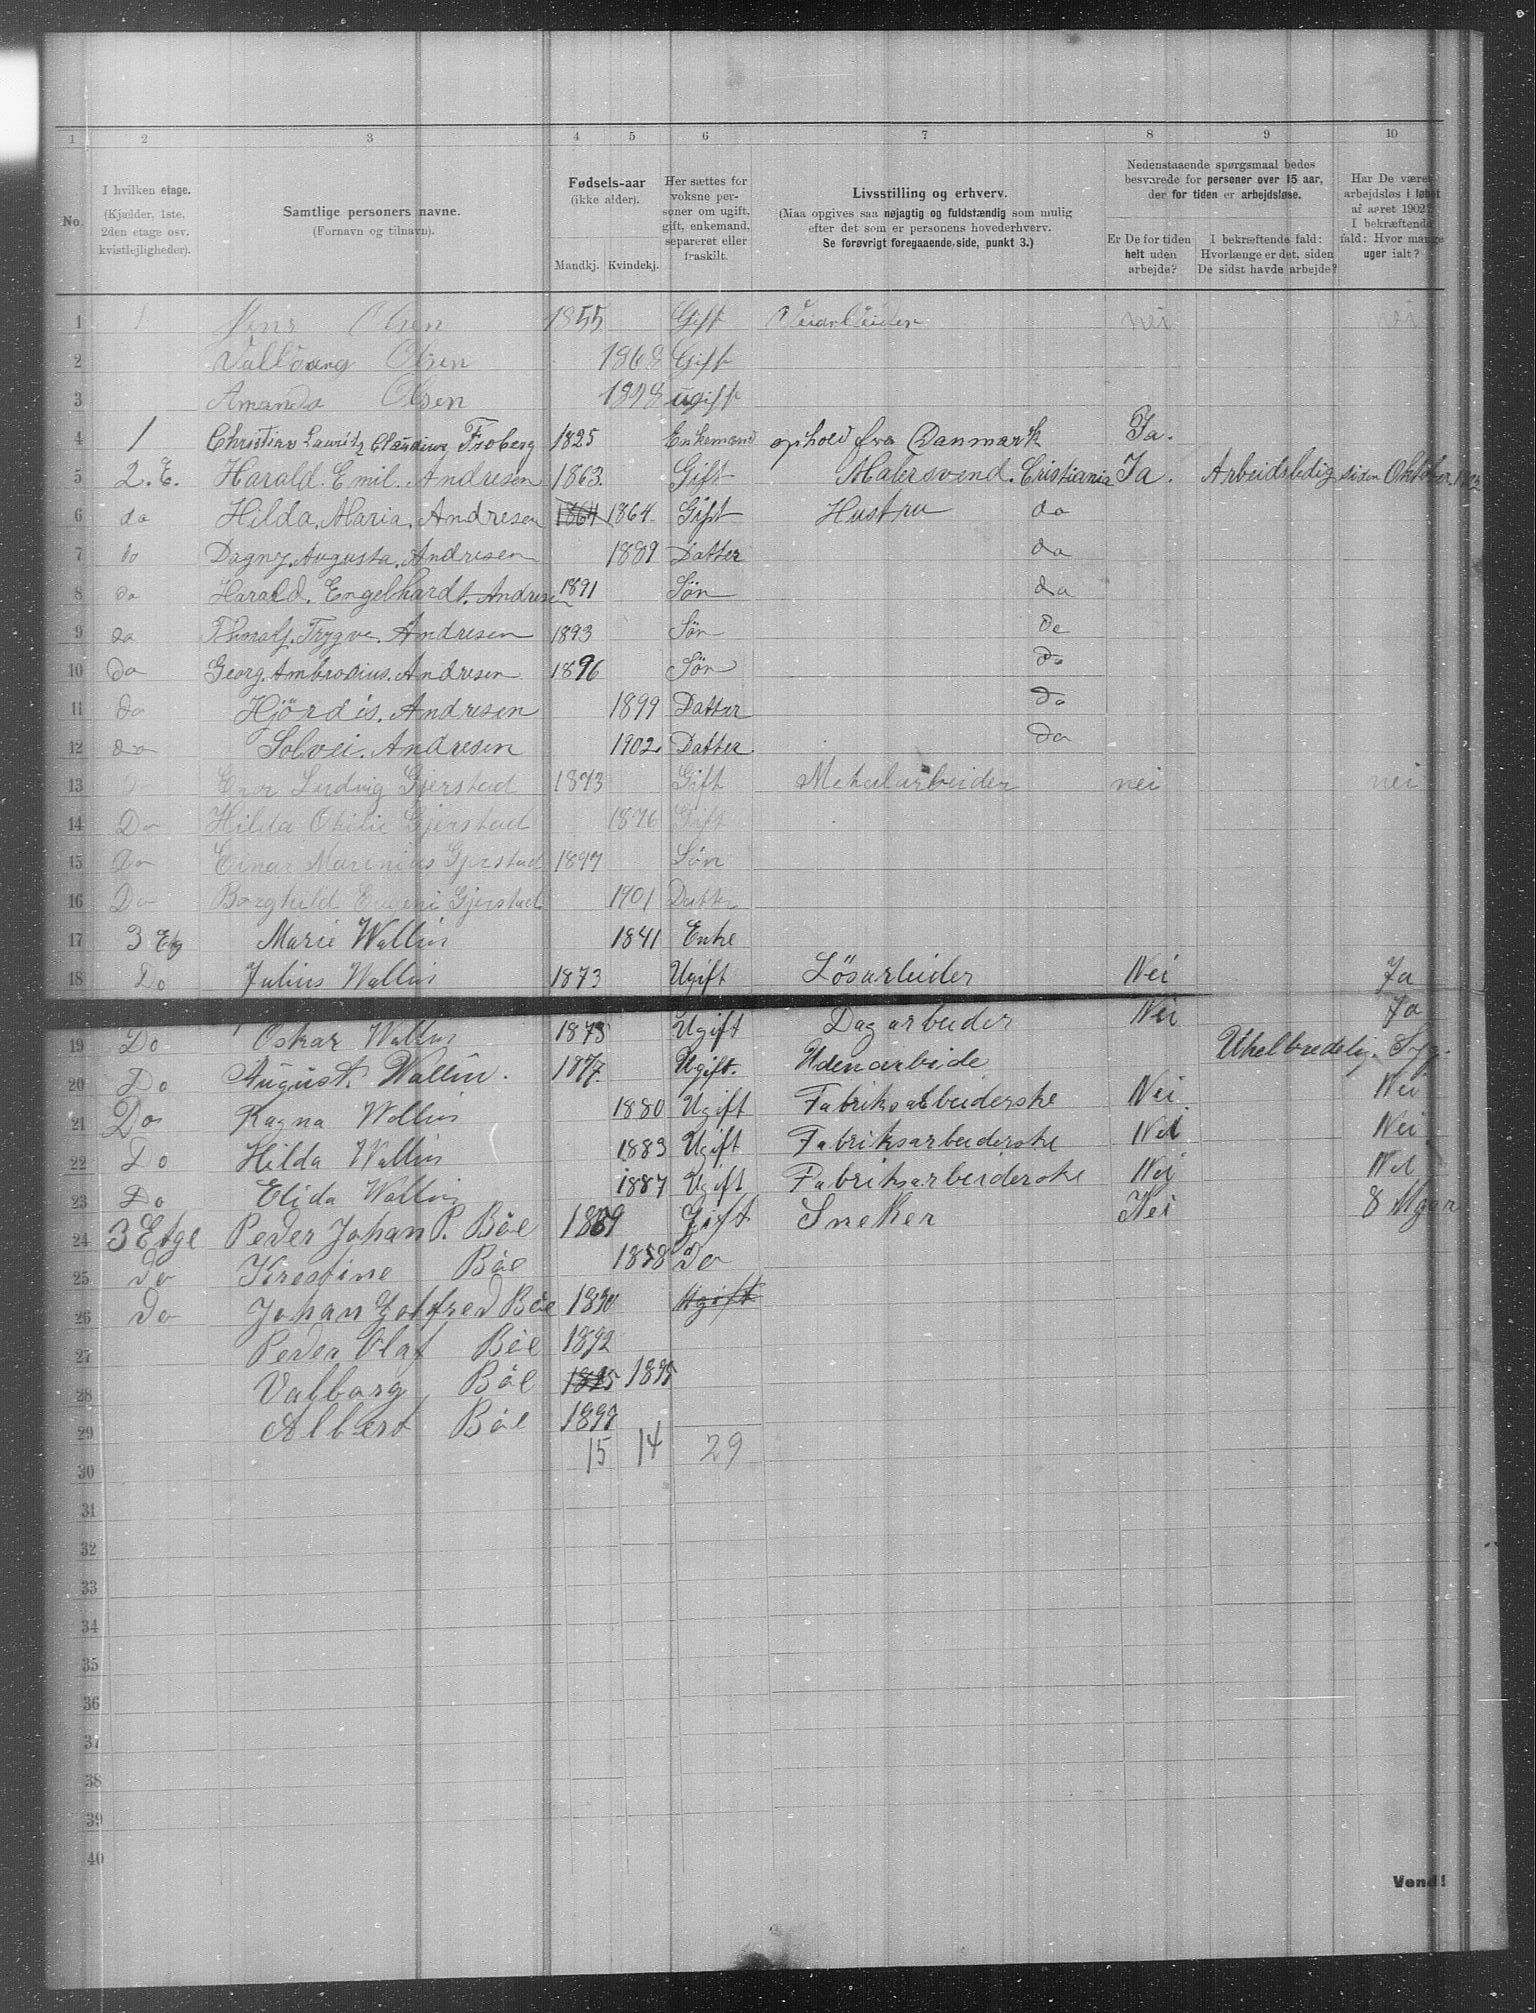 1 2 3 4 5 6 7 8 9 10
No.
I hvilken etage.
(Kjælder, 1ste, 2den etage osv. kvistlejligheder).
Samtlige personers navne.
(Fornavn og tilnavn).
Fødsels-aar
(ikke alder).
Mandkj. Kvindekj.
Her sættes for voksne personer om ugift, gift, enkemand, separeret eller fraskilt.
Livsstilling og erhverv.
(Maa opgives saa nøjagtig og fuldstændig som mulig efter det som er personens hovederhverv.
Se forøvrigt foregaaende side, punkt 3.)
Nedenstaaende spørgsmaal bedes besvarede for personer over 15 aar, der for tiden er arbejdsløse.
Er De for tiden helt uden arbejde?
I bekræftende fald: Hvorlænge er det, siden De sidst havde arbejde?
Har De været arbejdsløs i løbet af aaret 1902? I bekræftende fald: Hvor mange uger ialt?
1 1 Jens Olsen 1855 Gift Veiarbeider nei nei
2 Valborg Olsen 1868 Gift
3 Amanda Olsen 1898 ugift
4 1 Christian Lauritz Claudius Froberg 1825 Enkemand ophold fra Danmark Ja.
5 2. E. Harald. Emil. Andresen 1863. Gift Malersvend. Cristiania Ja. Arbeidsledig siden Oktober 1902
6 do Hilda. Maria. Andresen 1864 1864. Gift Hustru do
7 do Dagny. Augusta. Andresen 1889 Datter do
8 do Harald. Engelhardt. Andresen 1891 Søn do
9 do Trygve. Andresen 1893 Søn do
10 do Georg. Ambrosius. Andresen 1896 Søn do
11 do Hjördis. Andresen 1899 Datter do
12 do Solvei. Andresen 1902. Datter do
13 Ludvig Gjerstad 1873 Gift Metalarbeider nei nei
14 Do Hilda Otilie Gjerstad 1876 Gift
15 Do Einar Marinius Gjerstad 1897 Søn
16 Do Borghild Eugeni Gjerstad. 1901 Datter
17 3 Etg Marie Wallin 1841 Enke
18 Do Julius Wallin 1873 Ugift Løsarbeider Nei Ja
19 Do Oskar Wallin 1875 Ugift Dagarbeider Nei Ja
20 Do August. Wallin. 1877. Ugift. Udenarbeide Uhelbredelig. Syg.
21 Do Ragna Wallin 1880 Ugift Fabriksarbeiderske Nei Nei
22 Do Hilda Wallin 1883 Ugift Fabriksarbeiderske Nei Nei
23 Do Elida Wallin 1887 Ugift Fabriksarbeiderske Nei Nei
24 3 Etge Peder Johan P. Böe 1859 Gift Sneker Nei 8 Uger
25 Do Krestine Böe 1858 Do
26 Do Johan Gotfred Böe 1890 Ugift
27 Peder Olaf Böe 1892
28 Valborg Böe 1895 1895
29 Albert Böe 1897
30 15 14 29
31
32
33
34
35
36
37
38
39
40
Vend!